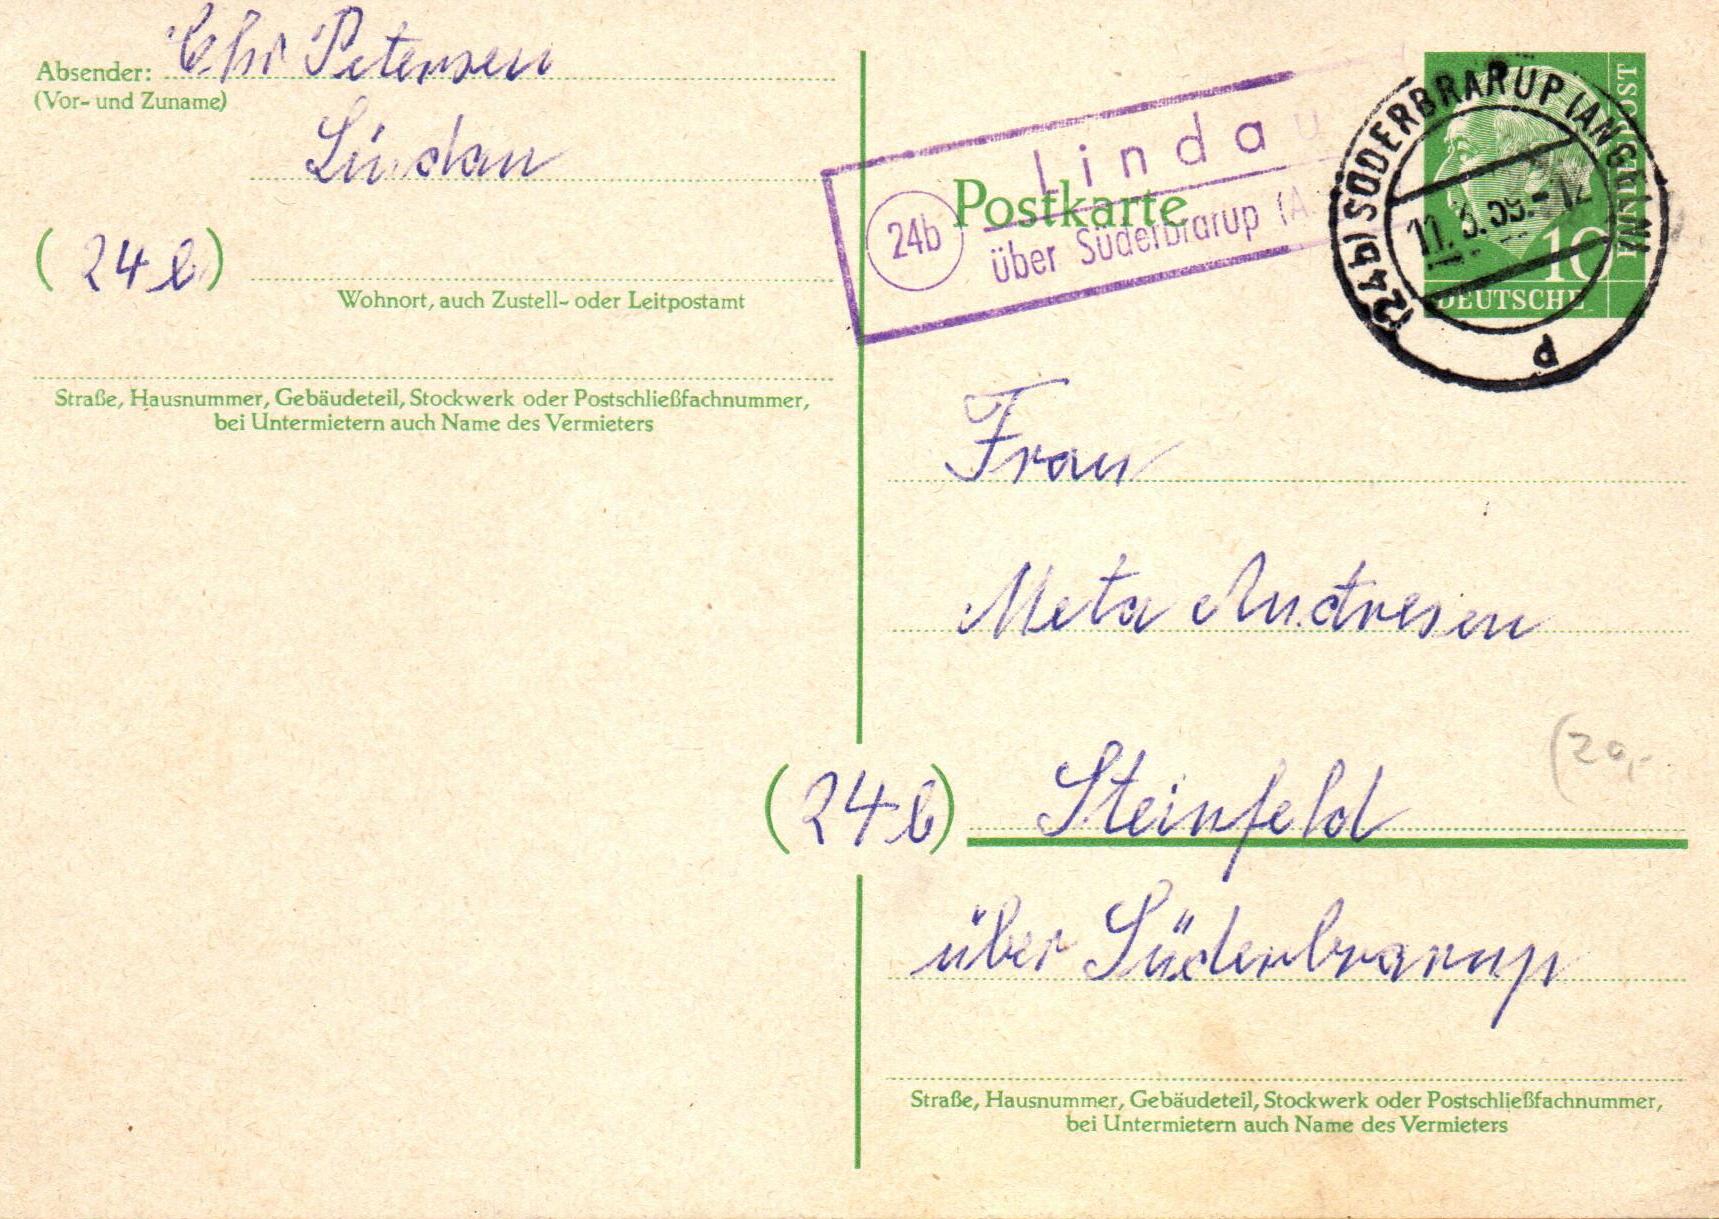 Absender: Chr Petersen
(Vor- und Zuname)
Lindau
(24b)
Wohnort, auch Zustell- oder Leitpostamt
Straße, Hausnummer, Gebäudeteil, Stockwerk oder Postschließfachnummer,
bei Untermietern auch Name des Vermieters
Lindau
24b
über Süderbrarup (A
Postkarte
(24b) SÜDERBRARUP (ANGELN)
11.3.59.-12
d
10
DEUTSCHE
BUNDESPOST
Frau
Meta Andresen
(20,-
(24b) Steinfeld
über Süderbrarup
Straße, Hausnummer, Gebäudeteil, Stockwerk oder Postschließfachnummer,
bei Untermietern auch Name des Vermieters